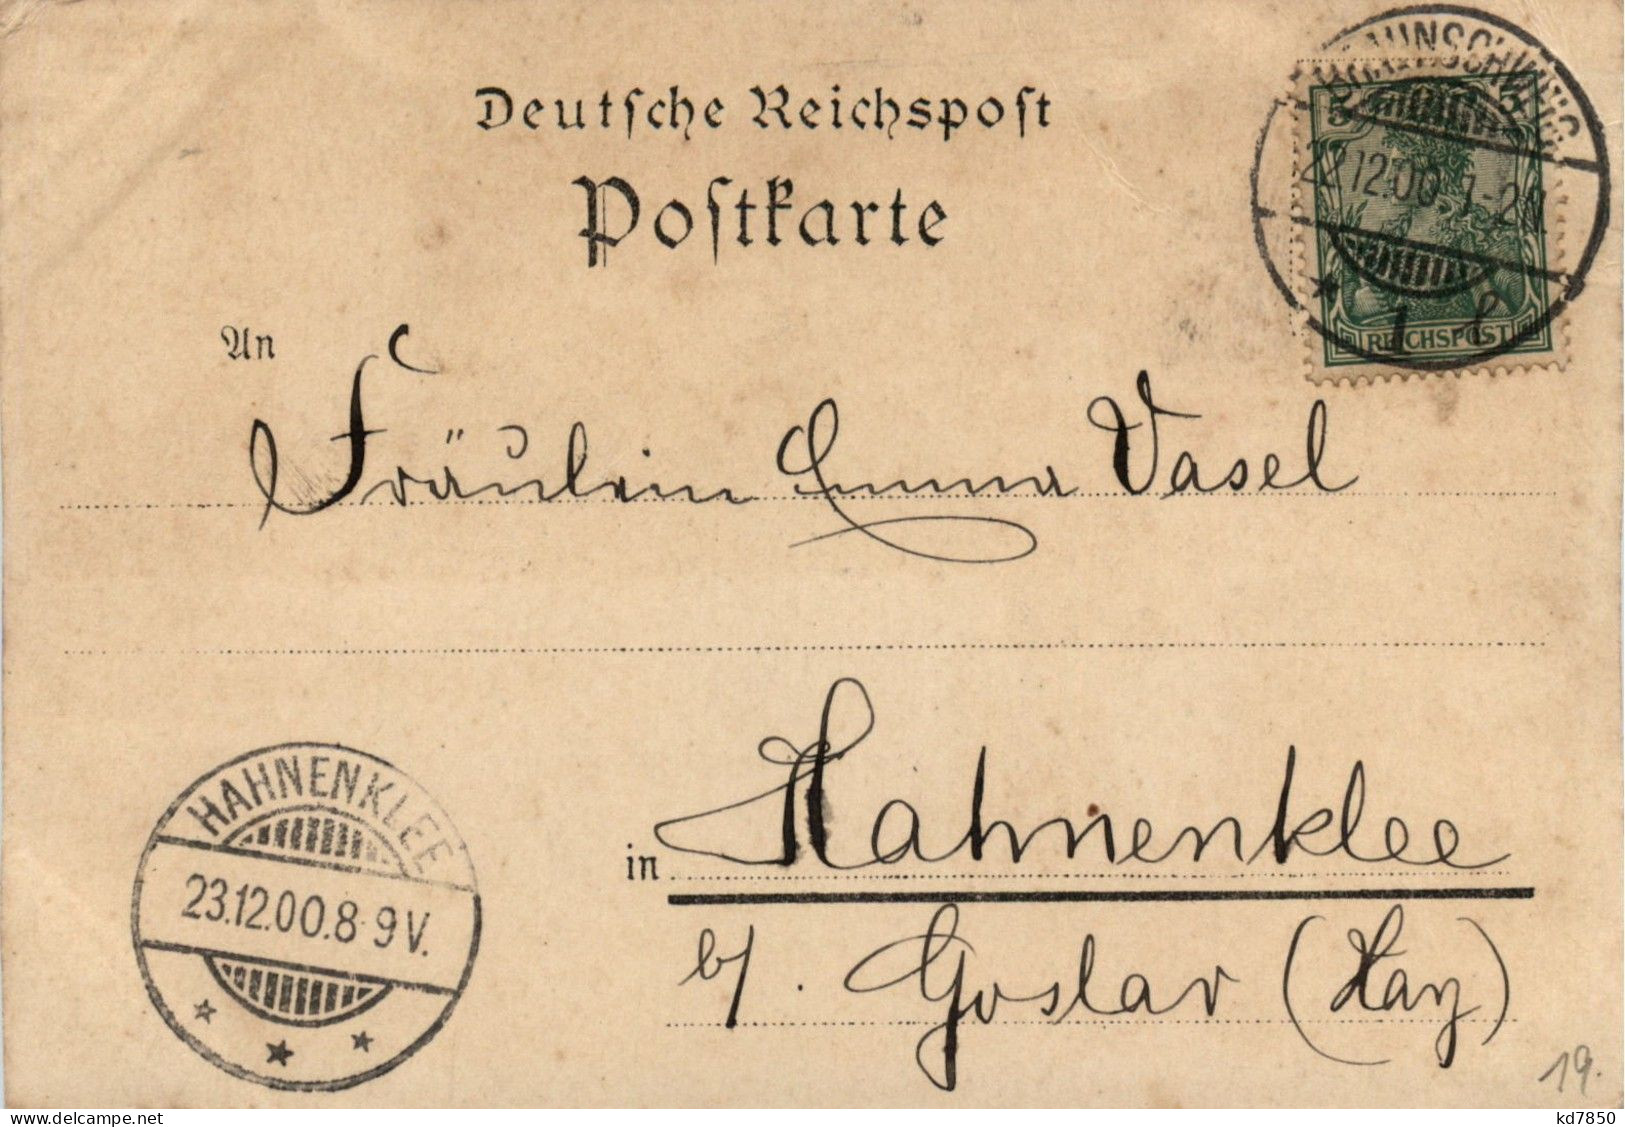 Deutsche Reichspost
Postkarte
BRAUNSCHWEIG
22.12.00.1-2N.
1
5 5
REICHSPOST
An
Fräulein Emma Vasel
in Hahnenklee
b/. Goslar (Harz)
HAHNENKLEE
23.12.00.8-9V.
19.
www.delcampe.net
kd7850